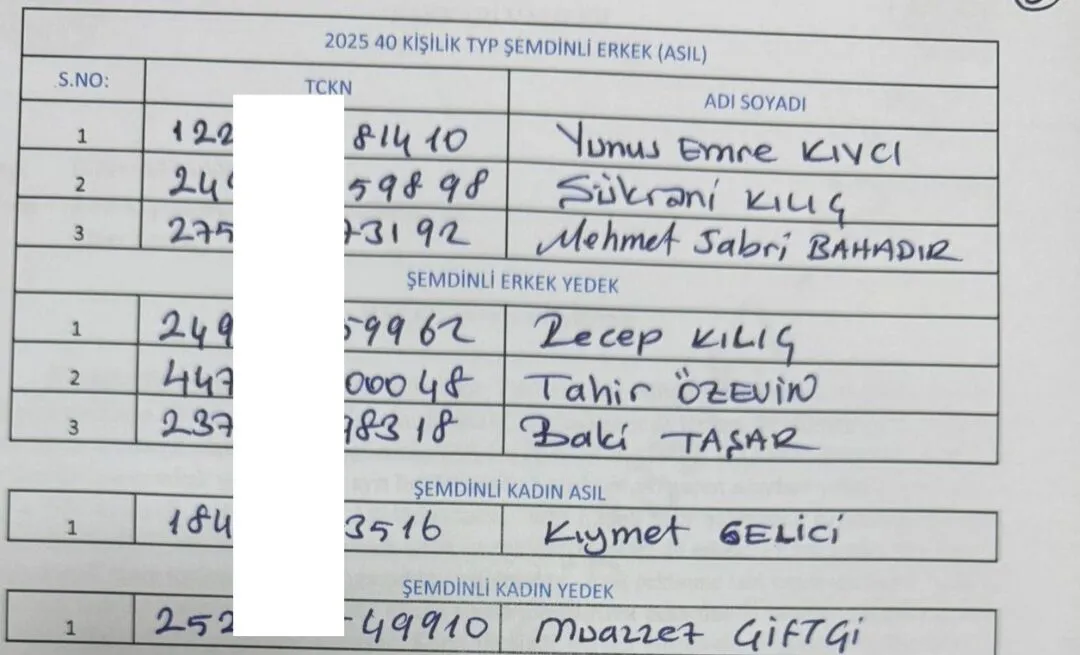 2025 40 KİŞİLİK TYP ŞEMDİNLİ ERKEK (ASIL)
S.NO: TCKN ADI SOYADI
1 122 81410 Yunus Emre KIVCI
2 24 59898 Şükrani KILIÇ
3 275 3192 Mehmet Sabri BAHADIR
ŞEMDİNLİ ERKEK YEDEK
1 249 59962 Recep KILIÇ
2 447 00048 Tahir ÖZEVİN
3 237 98318 Baki TAŞAR
ŞEMDİNLİ KADIN ASIL
1 184 3516 Kıymet GELİCİ
ŞEMDİNLİ KADIN YEDEK
1 252 49910 Muazzez ÇİFTÇİ